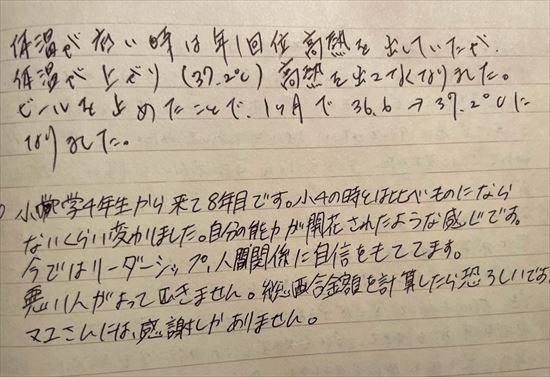 体温が低い時は年1回位高熱を出していたが、
体温が上がり(37.2℃)高熱を出さなくなりました。
ビールを止めたことで、1ヶ月で 36.6 → 37.2℃に
なりました。
小学4年生から来て8年目です。小4の時とは比べものになら
ないくらい変わりました。自分の能力が開花されたような感じです。
今ではリーダーシップ、人間関係に自信をもててます。
悪い人がよって きません。総合金額を計算したら恐ろしいです。
マユさんには、感謝しかありません。